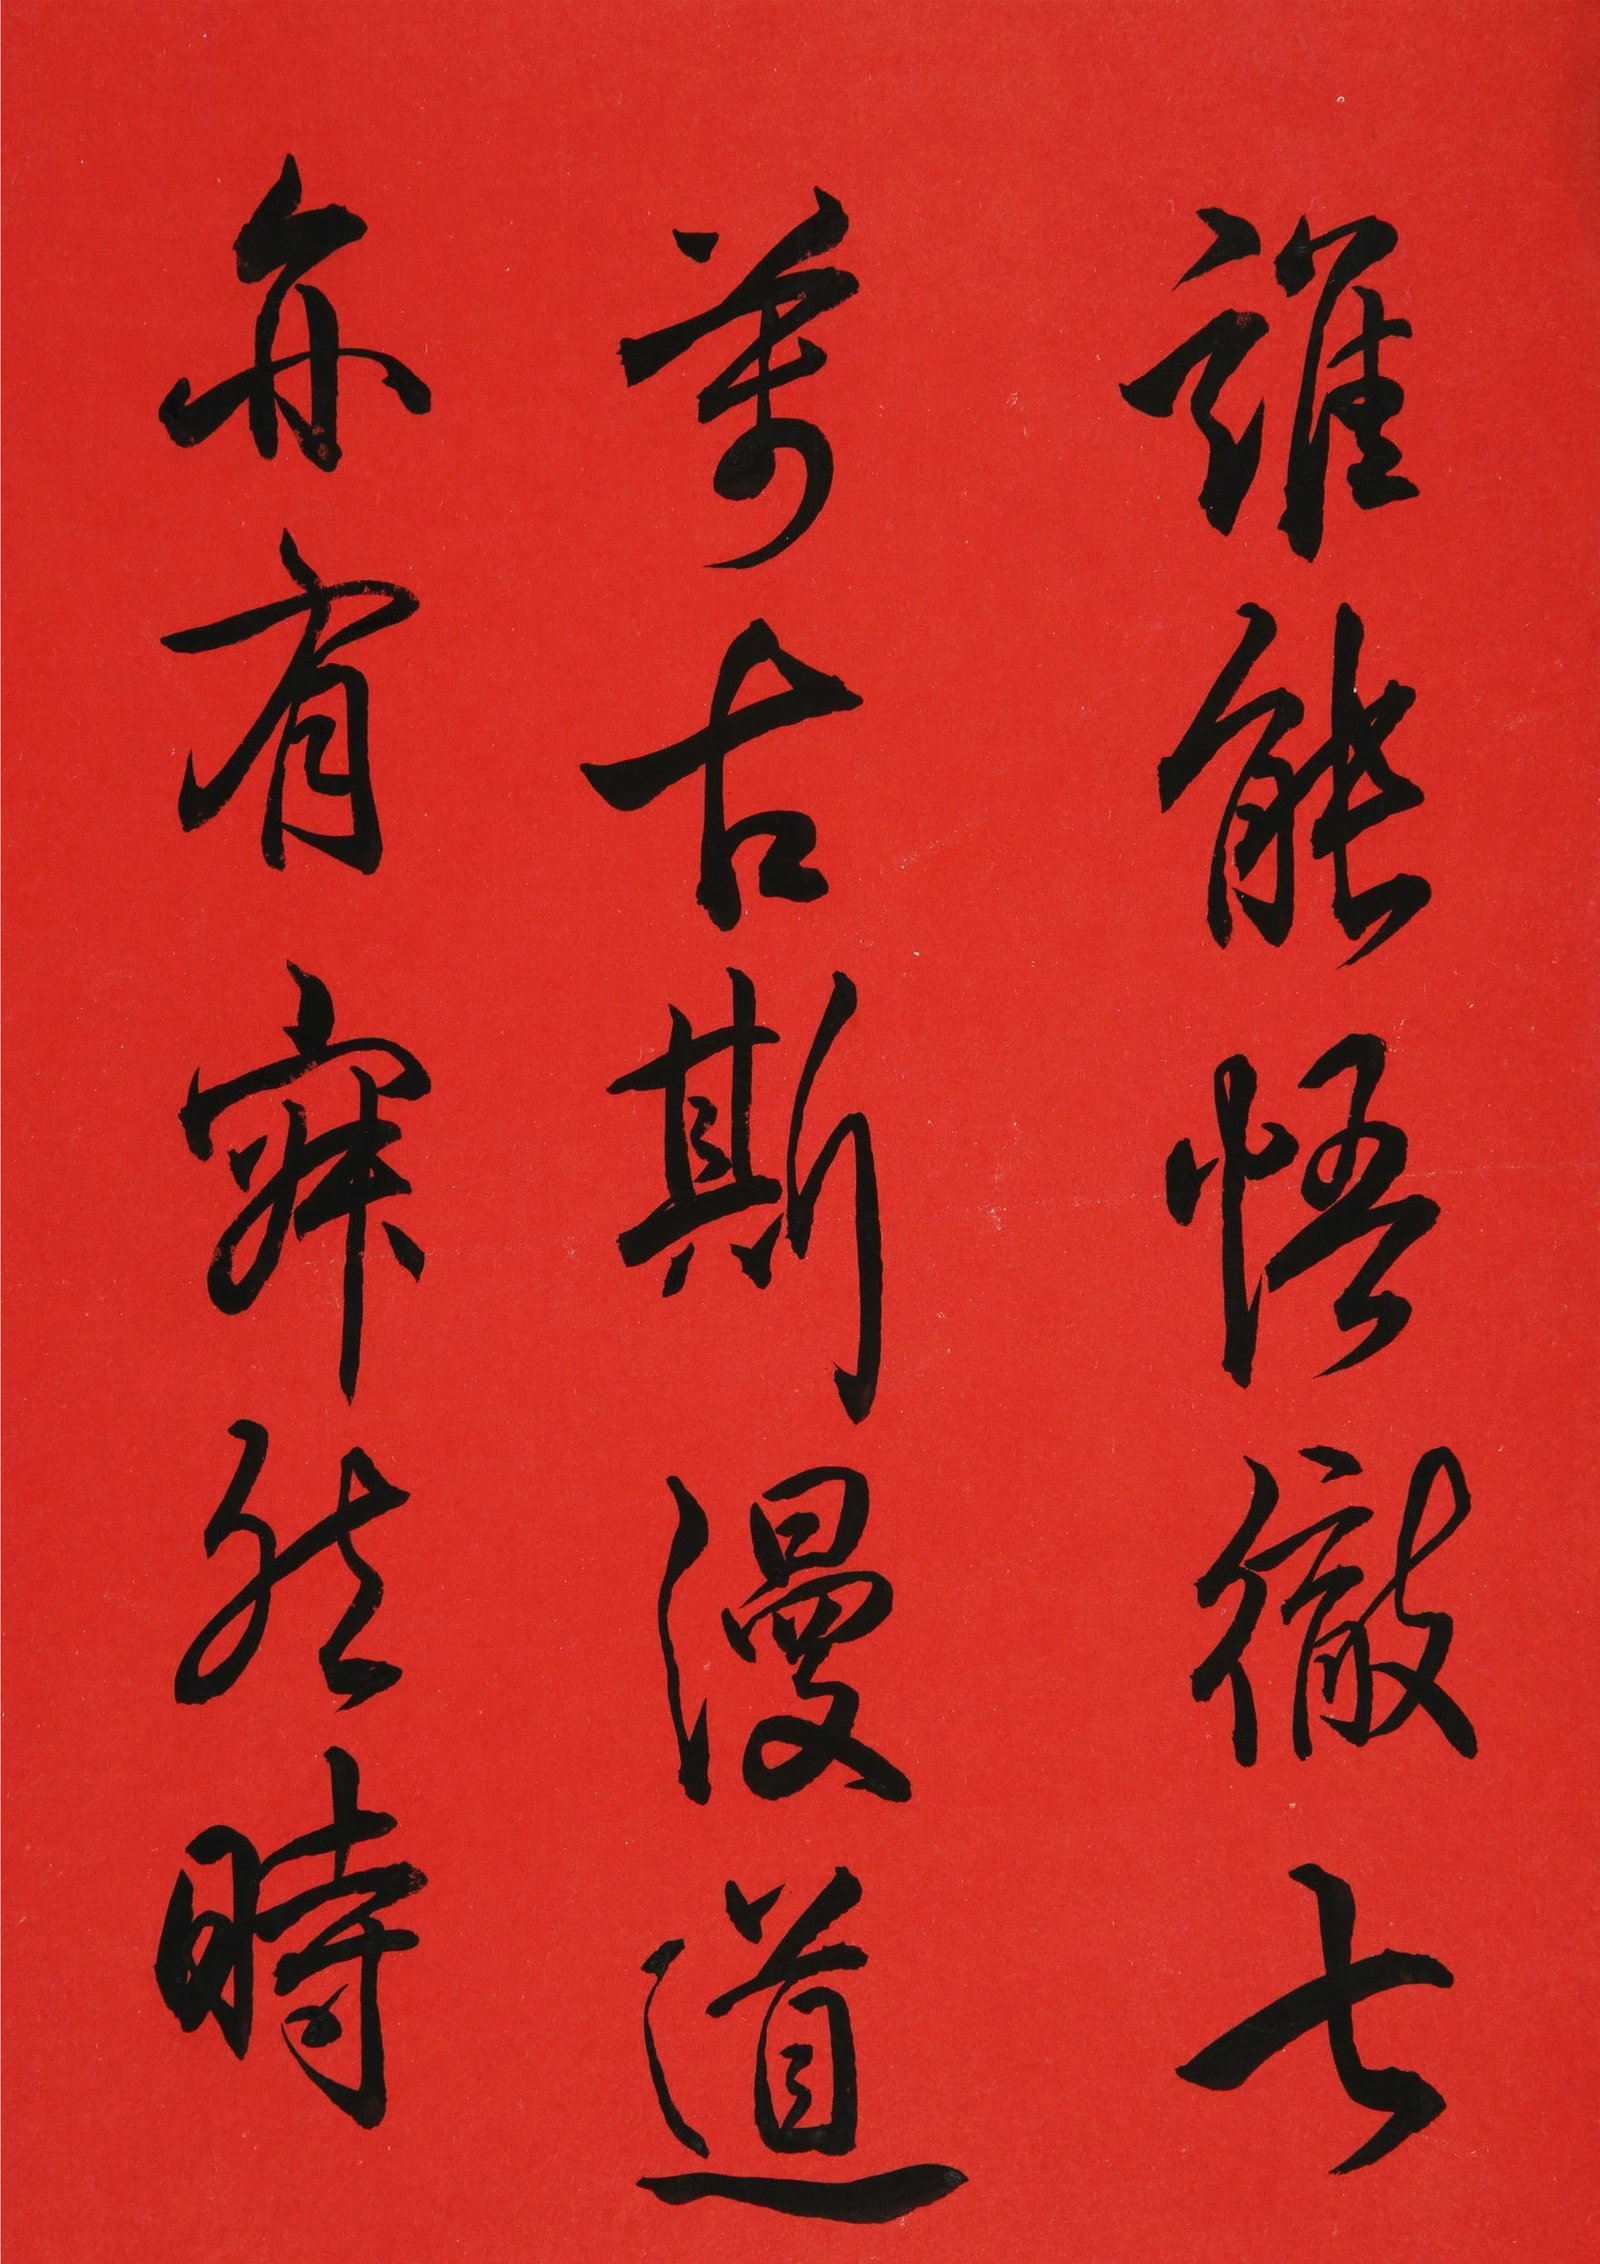 誰能悟徹七
萬古斯漫道
亦有寂然時